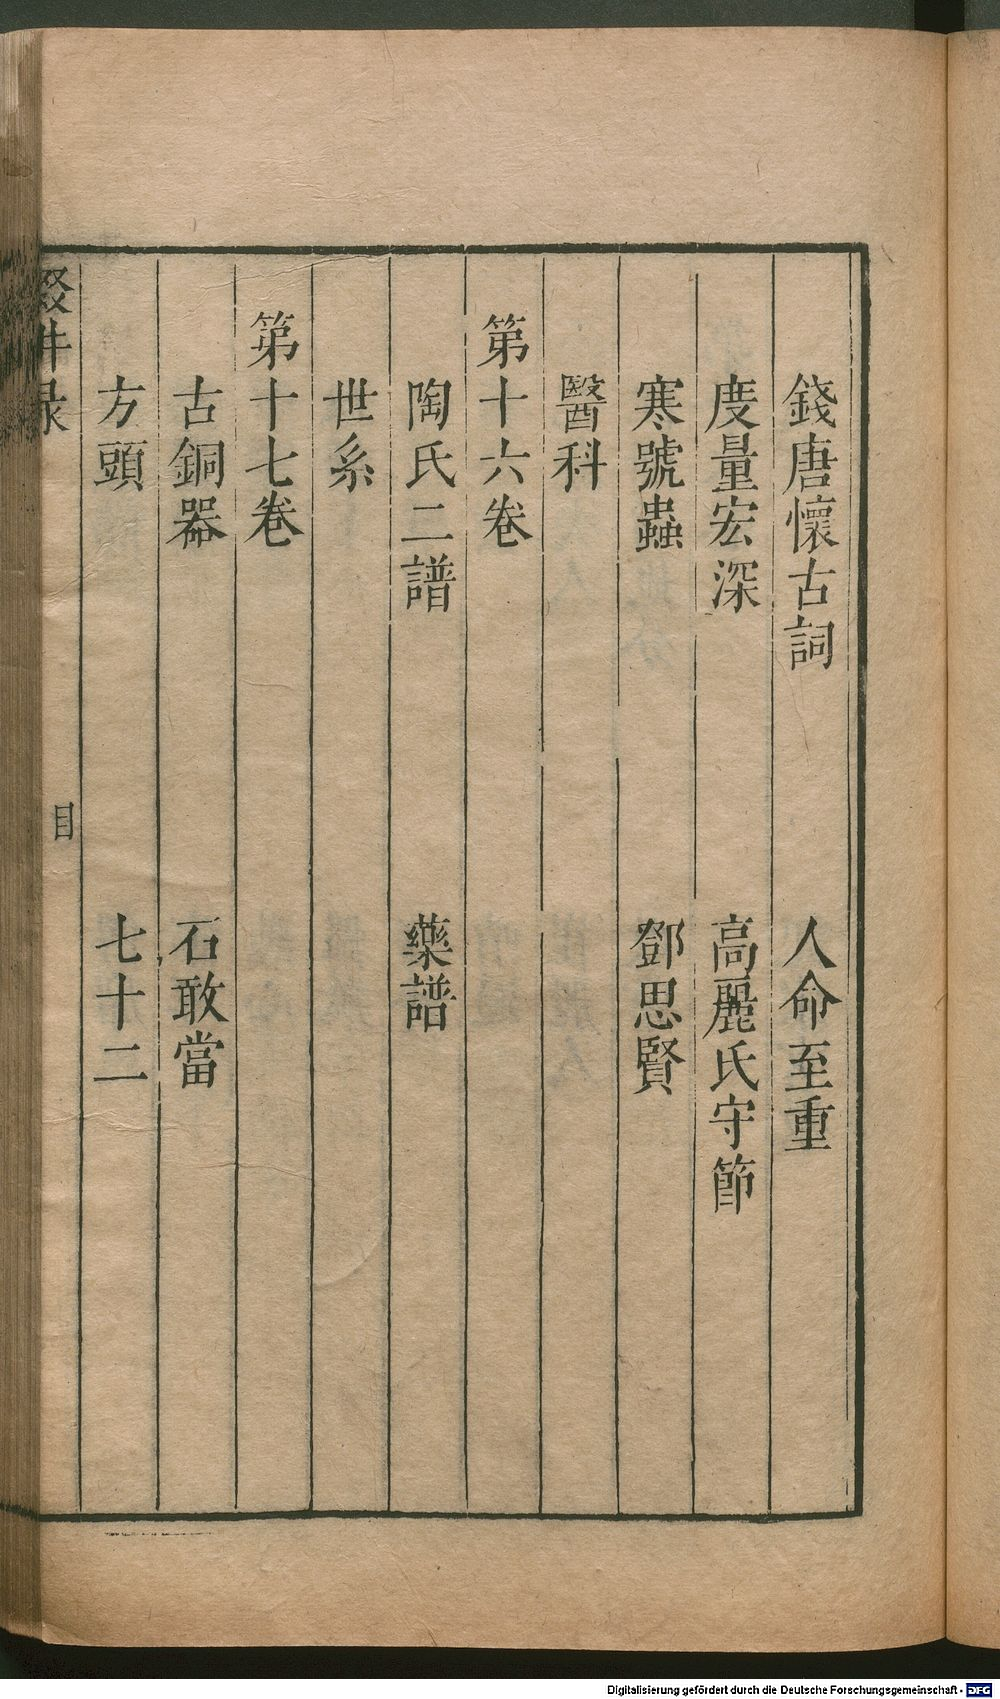 錢唐懷古詞 人命至重
度量宏深 高麗氏守節
寒號蟲 鄧思賢
醫科
第十六卷
陶氏二譜 藥譜
世系
第十七卷
古銅器 石敢當
方頭 七十二
輟耕录 目
Digitalisierung gefördert durch die Deutsche Forschungsgemeinschaft - DFG